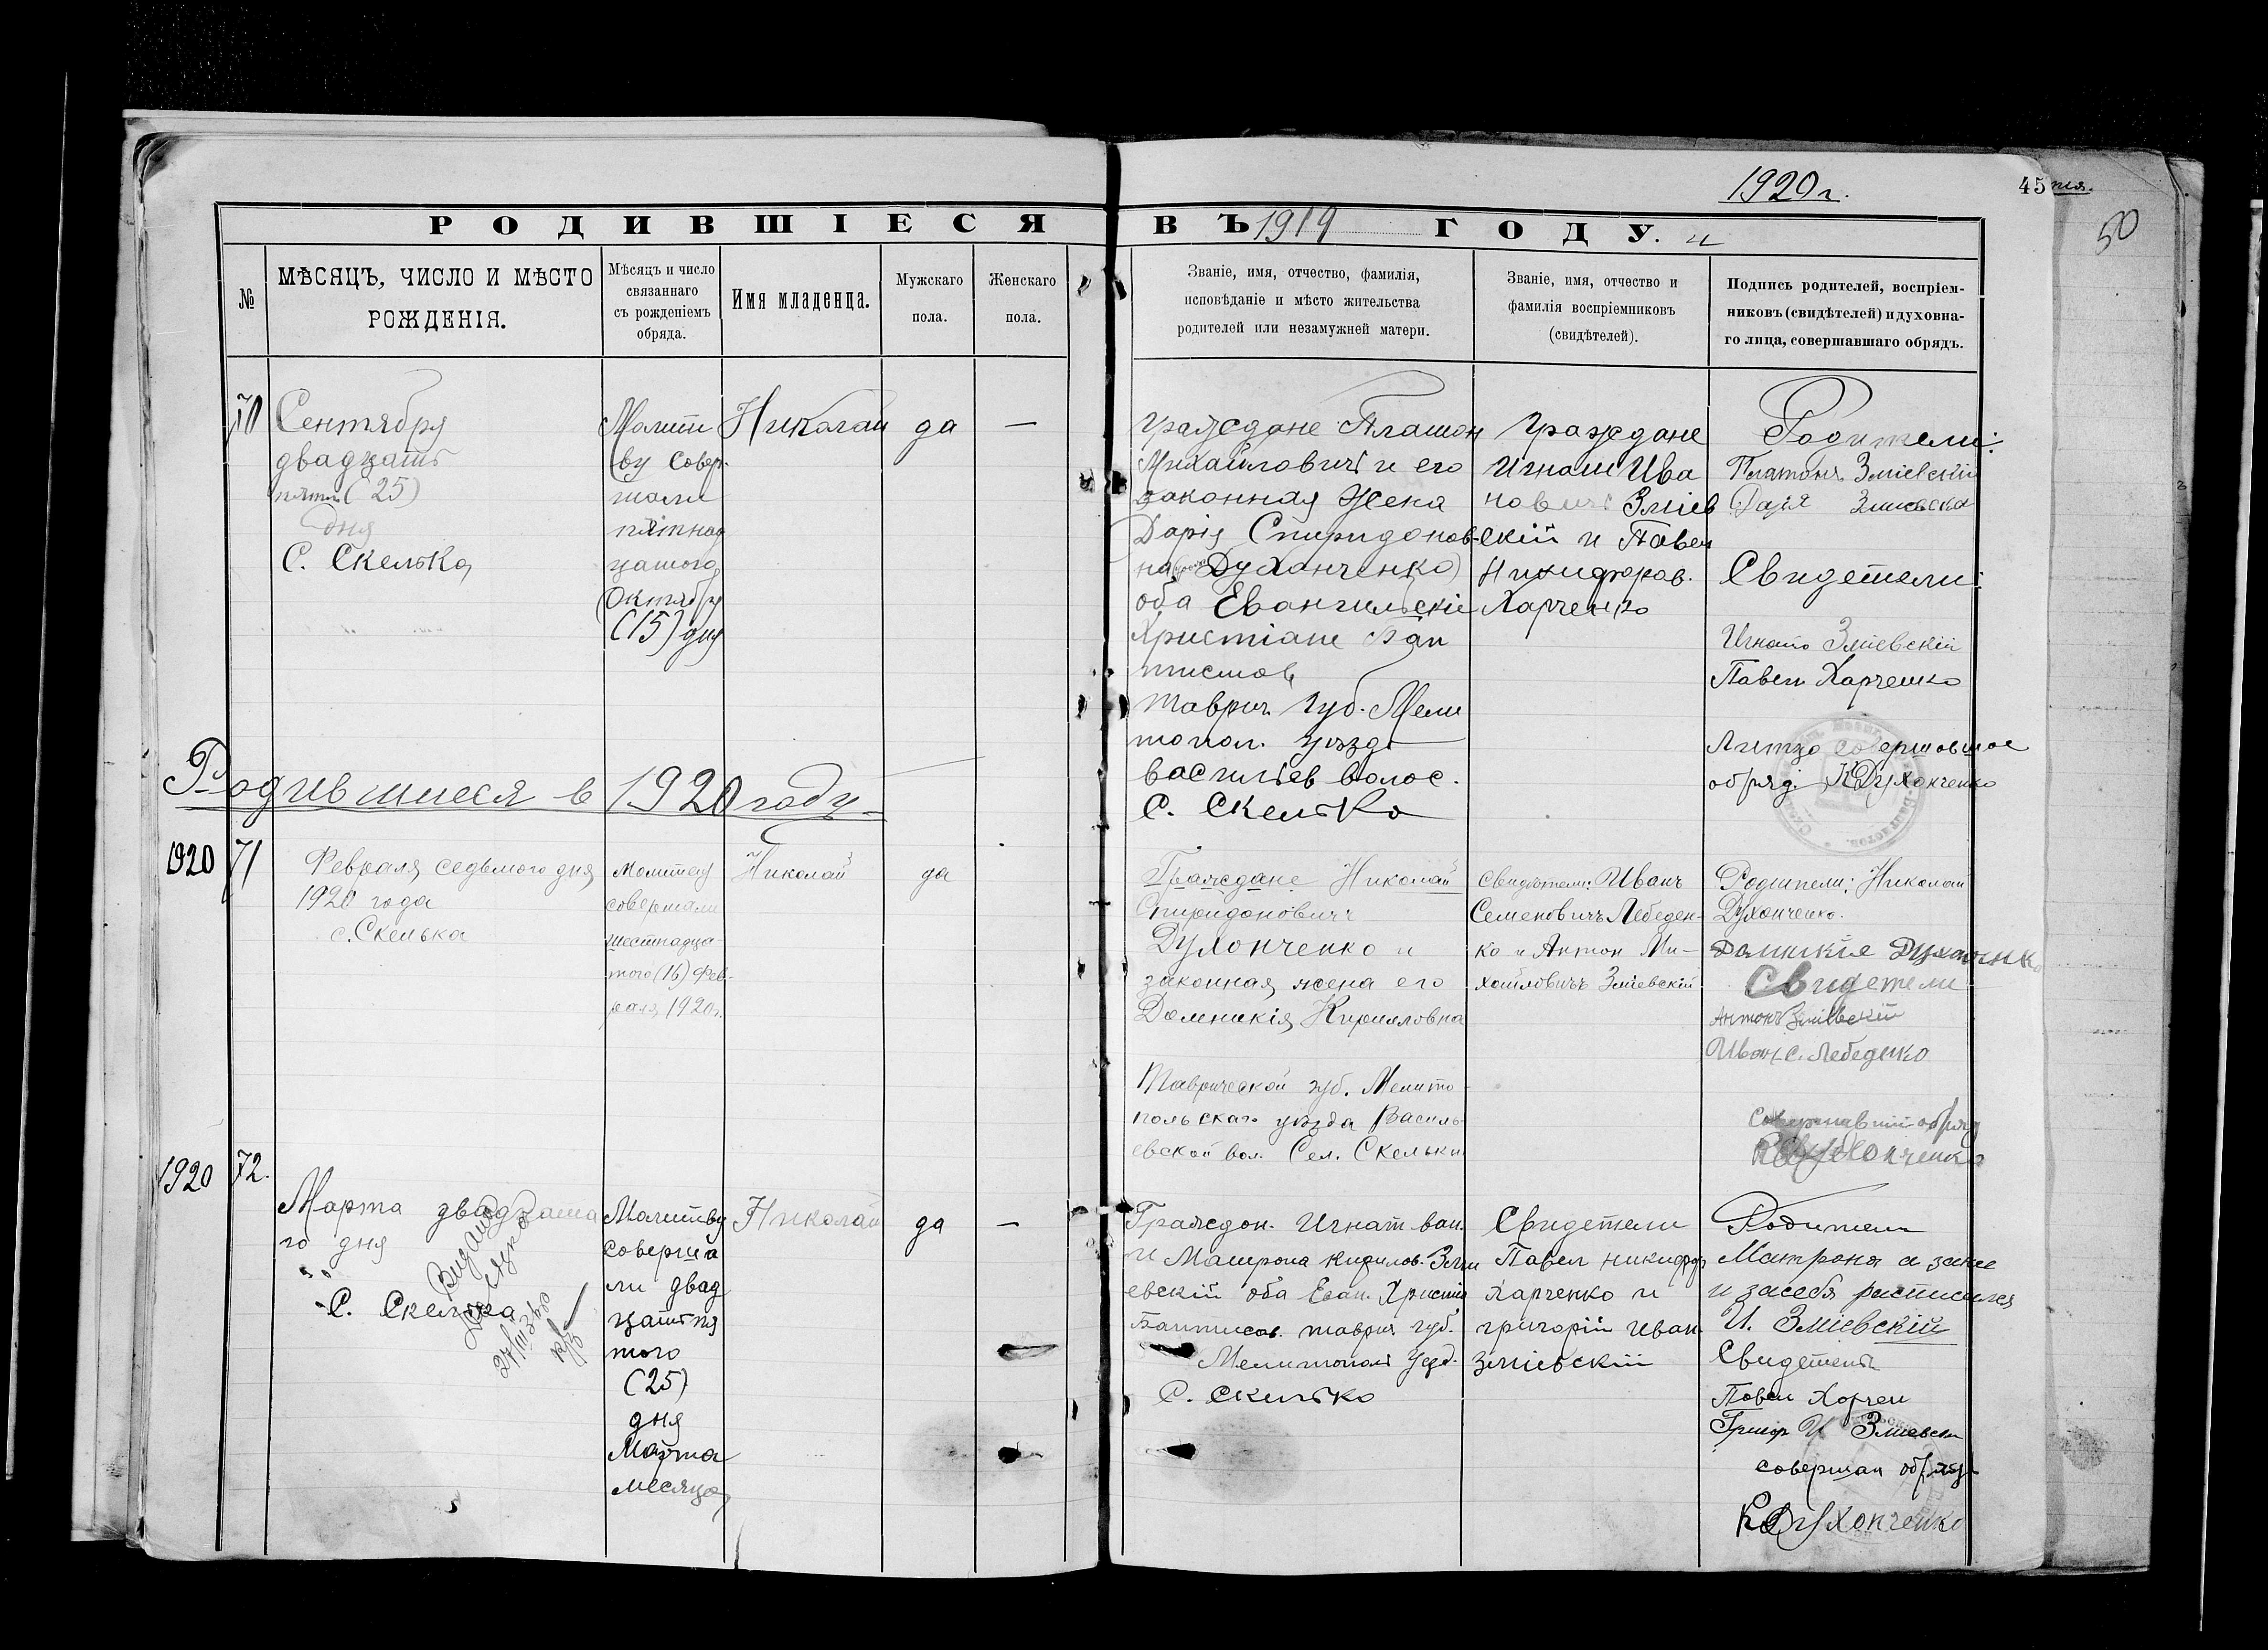 1920 г.
45
50
РОДИВШІЕСЯ ВЪ 1919 ГОДУ. и
№
МѢСЯЦЪ, ЧИСЛО И МѢСТО
РОЖДЕНІЯ.
Мѣсяцъ и число
связаннаго
съ рожденіемъ
обряда.
Имя младенца.
Мужскаго
пола.
Женскаго
пола.
Званіе, имя, отчество, фамилія,
исповѣданіе и мѣсто жительства
родителей или незамужней матери.
Званіе, имя, отчество и
фамилія воспріемниковъ
(свидѣтелей).
Подпись родителей, воспріем-
никовъ (свидѣтелей) и духовна-
го лица, совершавшаго обрядъ.
70
Сентября
двадцать
пяты (25)
дня
С. Скелька
Молит
ву совер-
шали
пятнад
цатого
Октября
(15) дня
Николай
да
—
граждане Платон
Михайловичъ и его
законная жена
Дарія Спиридонов-
на Духонченко)
оба Евангильскіе
Христіане Бап
тистов
Таврич. Губ. Мели
топол. уъзд
васильев волос.
С. Скелька
Граждане
Игнат Ива
нович Зміев
скій и Павел
Никифоров.
Харченко
Родители:
Платонъ Зміевскій
Дарія Змиевска
Свидетели:
Игнатъ Зміевскій
Павел Харченко
Литцо совершовшое
обряд. К Духонченко
Родившиеся в 1920 году
1920
71
Февраля седьмого дня
1920 года
с. Скелька
Молитву
совершали
шестнадца-
того (16) Фев-
раля 1920 г.
Николай
да
Граждане Николай
Спиридоновичъ
Духонченко и
законная жена его
Доменикія Кирилловна
Таврической губ. Мелито-
польскаго уѣзда Василь-
евской вол. Сел. Скельки
Свидѣтели: Иванъ
Семеновичъ Лебеден-
ко и Антон Ми-
хайловичъ Зміевскій
Родители: Николай
Духонченко.
Свидетели
Антонъ Зміевскій
Иван С. Лебеденко
Совершавший обряд
К Духонченко
1920
72.
Марта двадцата
го дня
С. Скелька
27/III 34
Молитву
соверша
ли двад
цать пя
того
(25)
дня
Марта
месяца
Николай
да
—
Граждон. Игнат Иван.
и Матрона Кирилов. Зми
евскій оба Еван. Христіа
Баптисов. таврич. губ.
Мелитопол Уезд.
С. Скилько
Свидетели
Павел никифор
Харченко и
григорій Иван
зміевскій
Родители
Матрона а занее
и засебя расписился
И. Зміевскій
Свидетели
Повел Хорчен
Григор И Змиевски
совершал обряд
К Духонченко